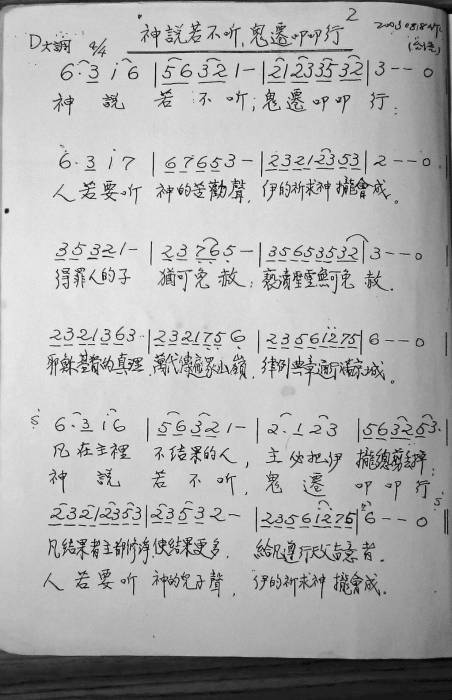 2
神說若不听,鬼遷叩叩行
D大調 4/4
6·3 i 6 | 5 6 3 2 1 - | 2 1 2 3 3 5 3 2 | 3 - - 0
神 說 若 不 听;鬼 遷 叩 叩 行:
6·3 i 7 | 6 7 6 5 3 - | 2 3 2 1 2 3 5 3 | 2 - - 0
人 若 要 听 神的 勸聲,伊的祈求神攏會成。
3 5 3 2 1 - | 2 3 7 6 5 - | 3 5 6 5 3 5 3 2 | 3 - - 0
得罪人的子 猶可免赦:褻瀆聖靈無可免 赦.
2 3 2 1 3 6 3 · | 2 3 2 1 7 5 6 | 2 3 5 6 i 2 7 5 | 6 - - 0
耶穌基督的真理,萬代傳 山嶺,律例典章 城。
6·3 i 6 | 5 6 3 2 1 - | 2·1 2 3 | 5 6 3 2 5 3·
凡在主裡 不結果的人,主必把伊 攏總剪
神 說 若 不 听,鬼 遷 叩 叩 行;
2 3 2 1 2 3 5 3 | 2 3 5 3 2 - | 2 3 5 6 i 2 7 5 | 6 - - 0
凡結果者主都修淨使結果更多. 給凡遵行天父旨意者.
人 若 要 听 神的兒子聲,伊的祈求神攏會成.